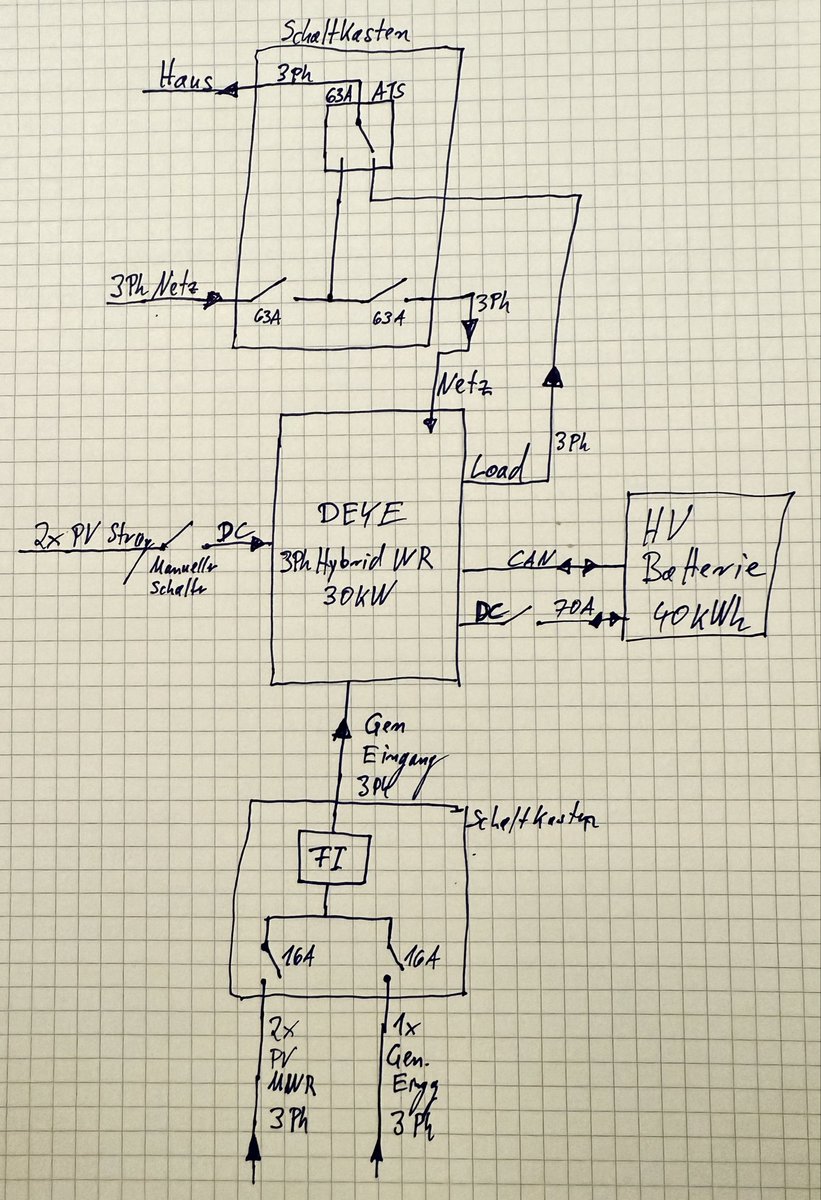 Schaltkasten
Haus
3Ph
63A ATS
3Ph Netz
63A
63A
3Ph
Netz
Load
3Ph
DEYE
3Ph Hybrid WR
30kW
2x PV Strg
Manueller
Schalter
DC
HV
Batterie
40kWh
CAN
DC
70A
Gen
Eingang
3Ph
Schaltkasten
FI
16A
16A
2x
PV
MWR
3Ph
1x
Gen.
Engg
3Ph